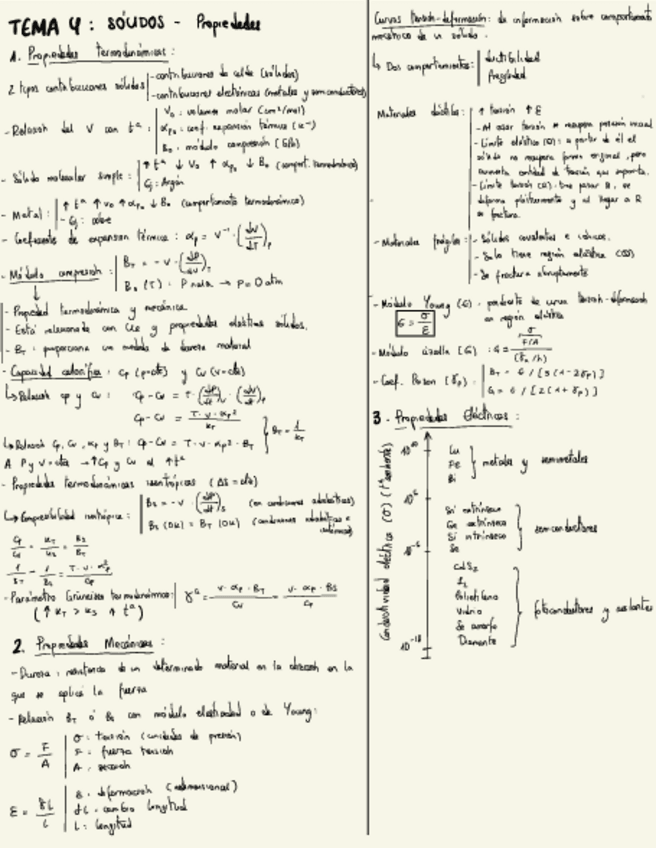 TEMA 4: SÓLIDOS - Propiedades
1. Propiedades termodinámicas:
2 tipos contribuciones sólidos
- contribuciones de calor (sólidos)
- contribuciones electrónicas (metales y semiconductores)
- Relación del V con tª:
V₀: volumen molar (cm³/mol)
αp₀: coef. expansión térmica (K⁻¹)
B₀: módulo compresión (GPa)
- Sólido molecular simple:
↑tª ↓V₀ ↑αp₀ ↓B₀ (comport. termodinámico)
Ej: Argón
- Metal:
↑tª ↑V₀ ↑αp₀ ↓B₀ (comportamiento termodinámico)
- Ej: cobre
- Coeficiente de expansión térmica: αp = V⁻¹ · (dV/dT)p
- Módulo compresión:
BT = -V · (dP/dV)T
B₀ (T): P nula → P=0 atm
- Propiedad termodinámica y mecánica
- Está relacionada con y propiedades elásticas sólidos.
- BT: proporciona una medida de dureza material
- Capacidad calorífica: Cp (p=cte) y Cv (v=cte)
↳ Relación cp y cv: Cp - Cv = T · (dP/dT)v · (dV/dT)p
Cp - Cv = T·V·αp²/κT
↳ Relación Cp, Cv, αp y BT: Cp - Cv = T·V·αp²·BT
BT = 1/κT
A P y V=ctes → ↑Cp y Cv al ↑tª
- Propiedades termodinámicas isentrópicas (ΔS=cte)
↳ Compresibilidad isentrópica:
BS = -V · (dP/dV)S (en condiciones adiabáticas)
BS (0K) = BT (0K) (condiciones adiabáticas e
Cp/Cv = κT/κS = BS/BT
1/BT - 1/BS = T·V·αp²/Cp
- Parámetro Grüneisen termodinámico: γG = V·αp·BT/Cv = V·αp·BS/Cp
(↑κT > κS ↑tª)
2. Propiedades Mecánicas:
- Dureza: resistencia de un determinado material en la dirección en la
que se aplica la fuerza
- Relación BT ó BS con módulo elasticidad o de Young:
σ = F/A
σ: tensión (unidades de presión)
F: fuerza tensión
A: sección
ε = δL/L
ε: deformación (adimensional)
δL: cambio longitud
L: longitud
Curvas tensión-deformación: da información sobre comportamiento
mecánico de un sólido.
↳ Dos comportamientos:
ductibilidad
fragilidad
Materiales dúctiles:
↑ tensión ↑ε
- Al cesar tensión se recupera posición inicial
- Límite elástico (O): a partir de él el
sólido no recupera forma original, pero
aumenta cantidad de tensión que soporta.
- Límite tensión (R): tras pasar B, se
deforma plásticamente y al llegar a R
se fractura.
- Materiales frágiles:
- Sólidos covalentes e iónicos.
- Solo tiene región elástica (OB)
- Se fractura abruptamente
- Módulo Young (E): pendiente de curva tensión-deformación
en región elástica
E = σ/ε
- Módulo cizalla (G): G = (F/A)/(δx/h)
- Coef. Poisson (δp):
BT = E/[3(1-2δp)]
G = E/[2(1+δp)]
3. Propiedades Eléctricas:
Conductividad eléctrica (σ) (tª ambiente)
10²⁰
Cu
Fe
Bi
metales y semimetales
10⁶
Si extrínseco
Ge extrínseco
Si intrínseco
Se
semiconductores
10⁻⁶
CdS₂
I₂
Polietileno
Vidrio
Se amorfo
Diamante
fotoconductores y aislantes
10⁻¹⁸